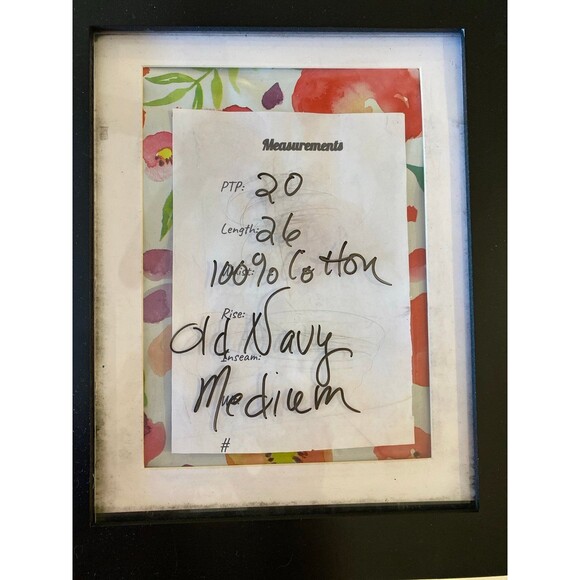 Measurements
PTP: 20
Length: 26
100% Cotton
Rise:
Old Navy
Inseam:
Medium
#